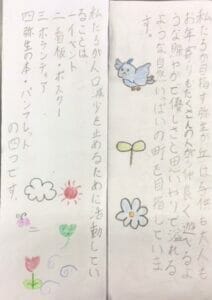 私たちが目指す弥生が丘は子供も大人も
お年寄りもたくさんの人が仲良く遊べるよ
うな賑やかで優しさと思いやりで溢れる
ような良いっぱいの町を目指していま
す。
私たちが人口減少を止めるために活動してい
ることは、
一イベント
二看板・ポスター
三ボランティア
四弥生の本・パンフレット
の四つです。